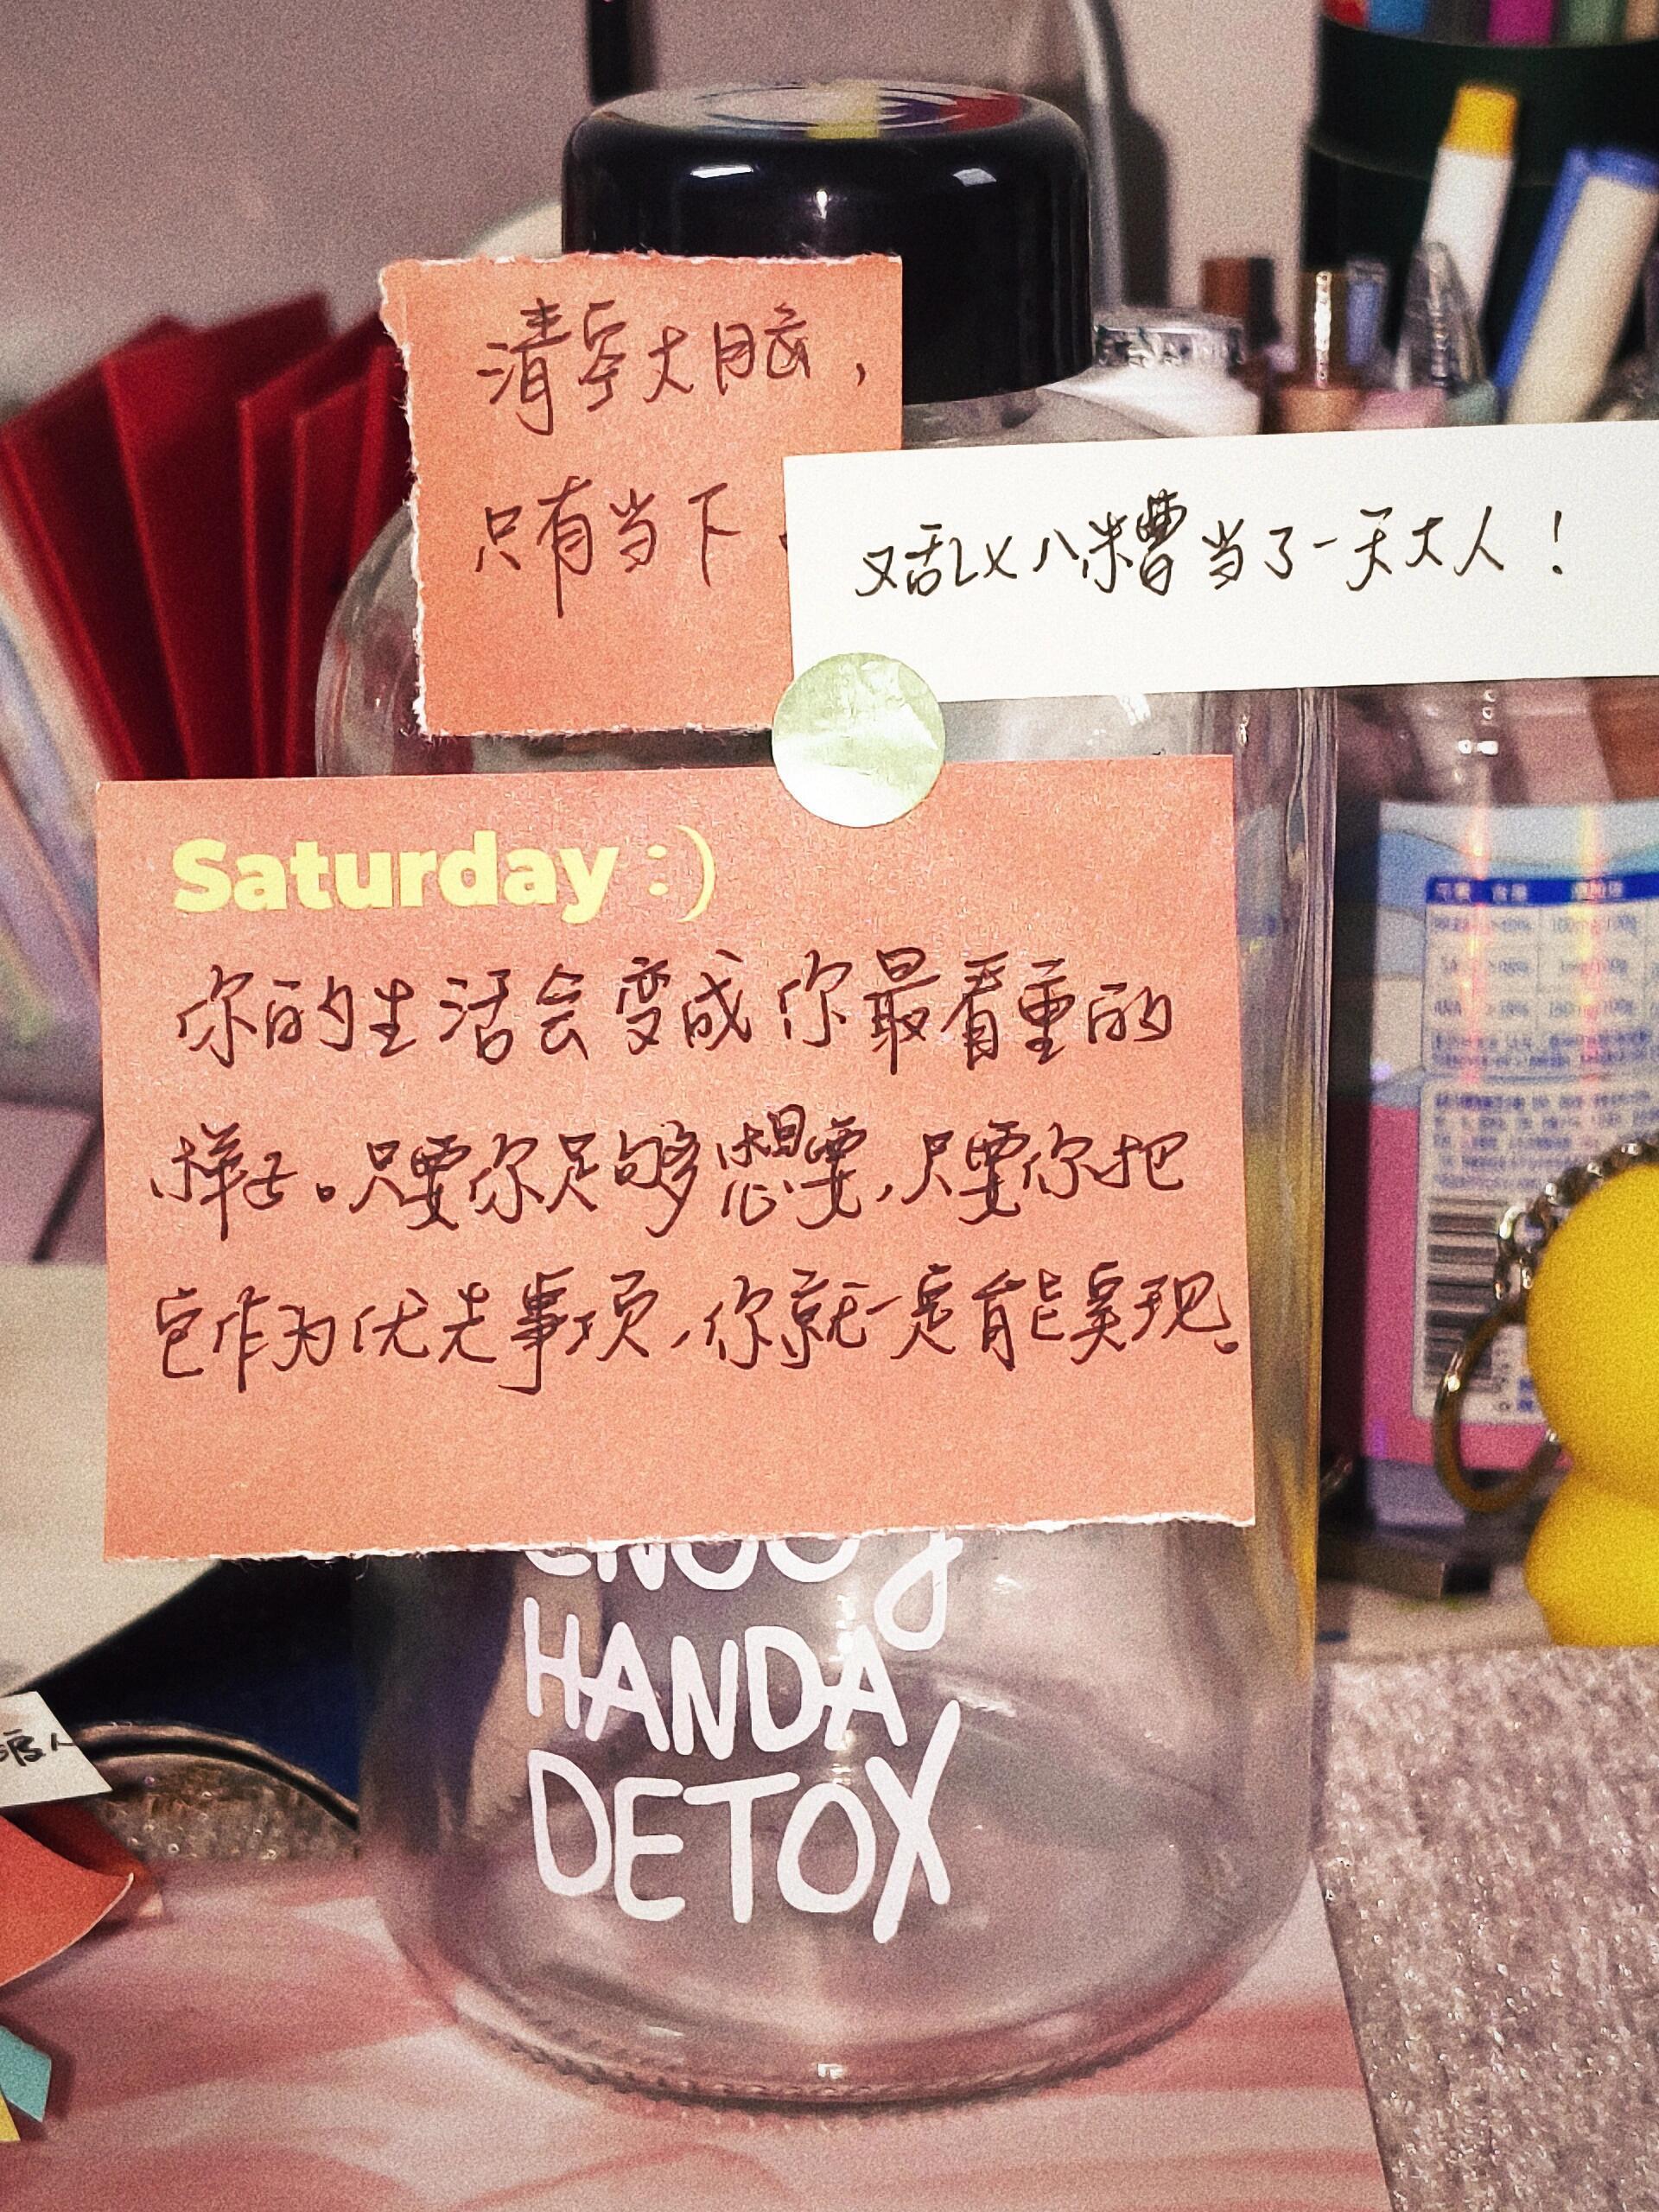 清空大脑，
只有当下。
又乱乂八糟当了一天大人！
Saturday :)
你的生活会变成你最看重的
样子。只要你足够想要，只要你把
它作为优先事项，你就一定能实现。
ENJOY
HANDA
DETOX